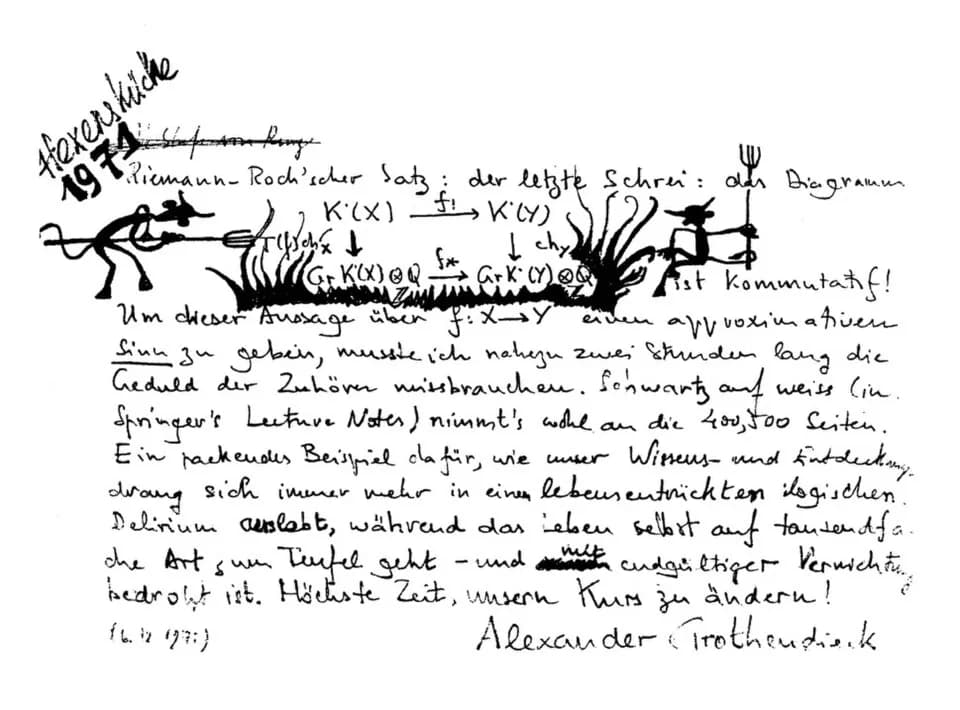 Hexenküche
1971
Riemann-Roch'scher Satz: der letzte Schrei: das Diagramm
K˙(X) f! → K˙(Y)
↓ ↓ ch_Y
Gr K˙(X)⊗Q f* → Gr K˙(Y)⊗Q
Z Z
ist kommutatif!
Um dieser Aussage über f: X→Y einen approximativen
Sinn zu geben, musste ich nahezu zwei Stunden lang die
Geduld der Zuhörer missbrauchen. Schwartz auf weiss (in
Springer's Lecture Notes) nimmt's wohl an die 400, 500 Seiten.
Ein packendes Beispiel dafür, wie unser Wissens- und Entdeckungs-
drang sich immer mehr in einem lebensentrückten logischen
Delirium auslebt, während das Leben selbst auf tausendfa-
che Art zum Teufel geht - und mit endgültiger Vernichtung
bedroht ist. Höchste Zeit, unsern Kurs zu ändern!
Alexander Grothendieck